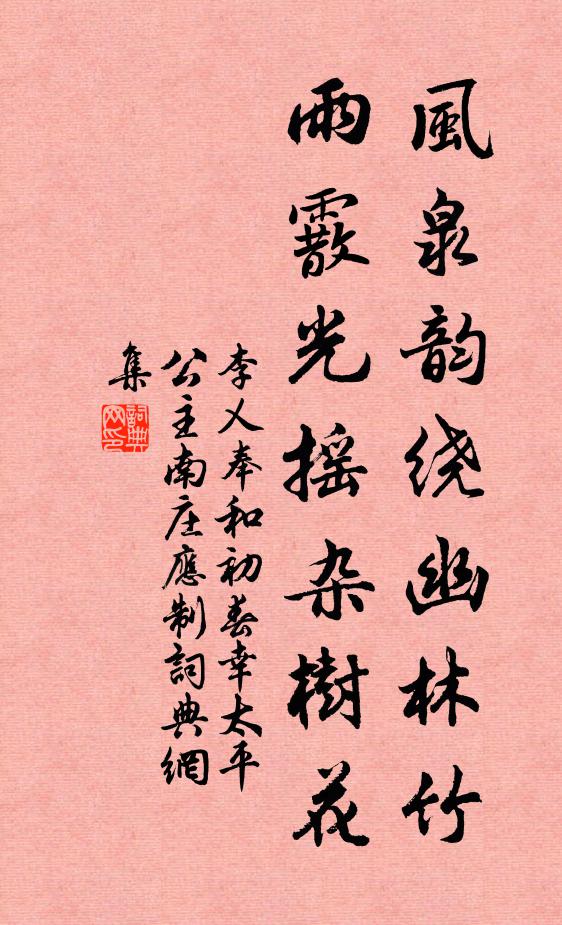 風泉韵绕幽林竹
雨霰光摇杂樹花
李乂奉和初春幸太平
公主南庄應制詞典網
集
詞典
网印